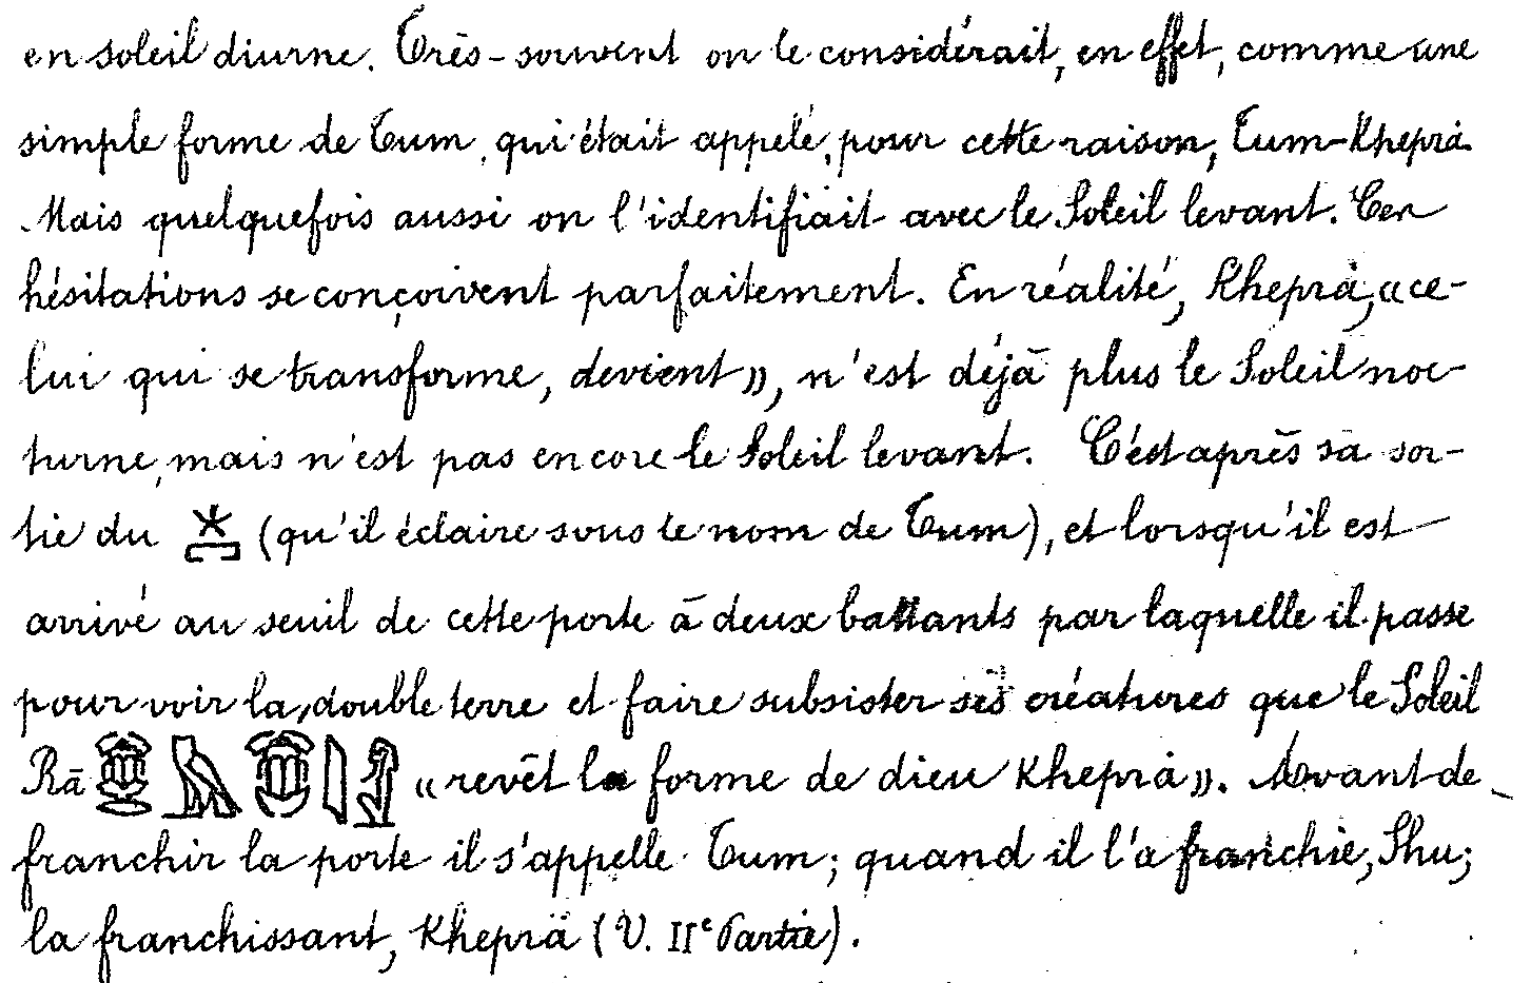 en soleil diurne. Très-souvent on le considérait, en effet, comme une
simple forme de Tum, qui était appelé, pour cette raison, Tum-Kheprà.
Mais quelquefois aussi on l'identifiait avec le Soleil levant. Ces
hésitations se conçoivent parfaitement. En réalité, Kheprà, «ce-
lui qui se transforme, devient», n'est déjà plus le Soleil noc-
turne, mais n'est pas encore le Soleil levant. C'est après sa sor-
tie du (qu'il éclaire sous le nom de Tum), et lorsqu'il est
arrivé au seuil de cette porte à deux battants par laquelle il passe
pour voir la double terre et faire subsister ses créatures que le Soleil
Rā «revêt la forme de dieu Kheprà». Avant de
franchir la porte il s'appelle Tum; quand il l'a franchie, Shu;
la franchissant, Kheprä (V. IIe Partie).